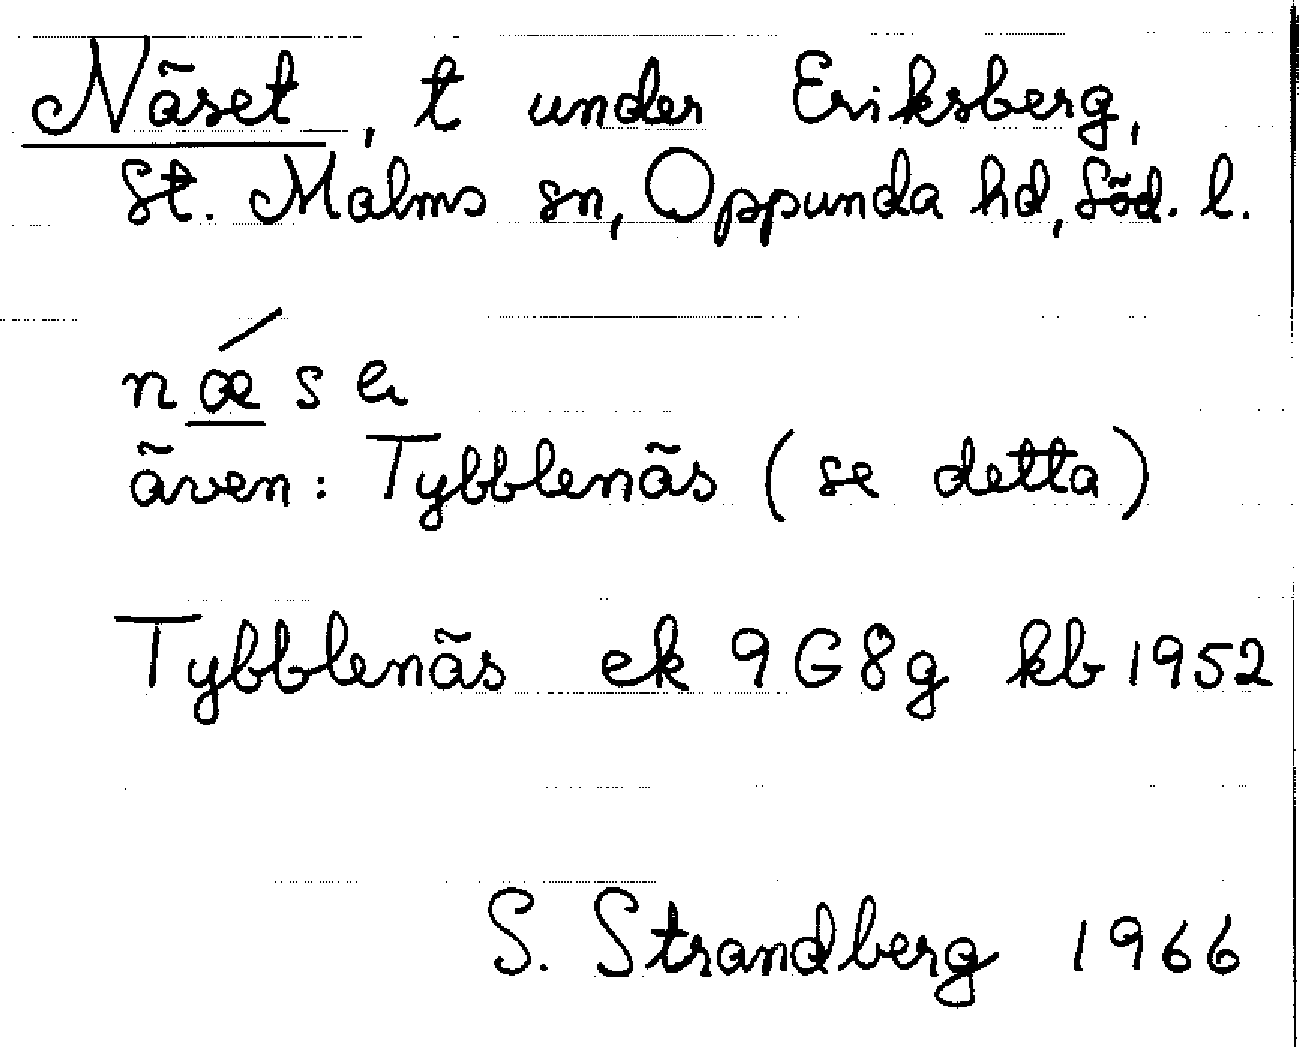 Näset, t under Eriksberg,
St. Malms sn, Oppunda hd, Söd. l.
nǽse
även: Tybblenäs (se detta)
Tybblenäs ek 9G8g kb 1952
S. Strandberg 1966